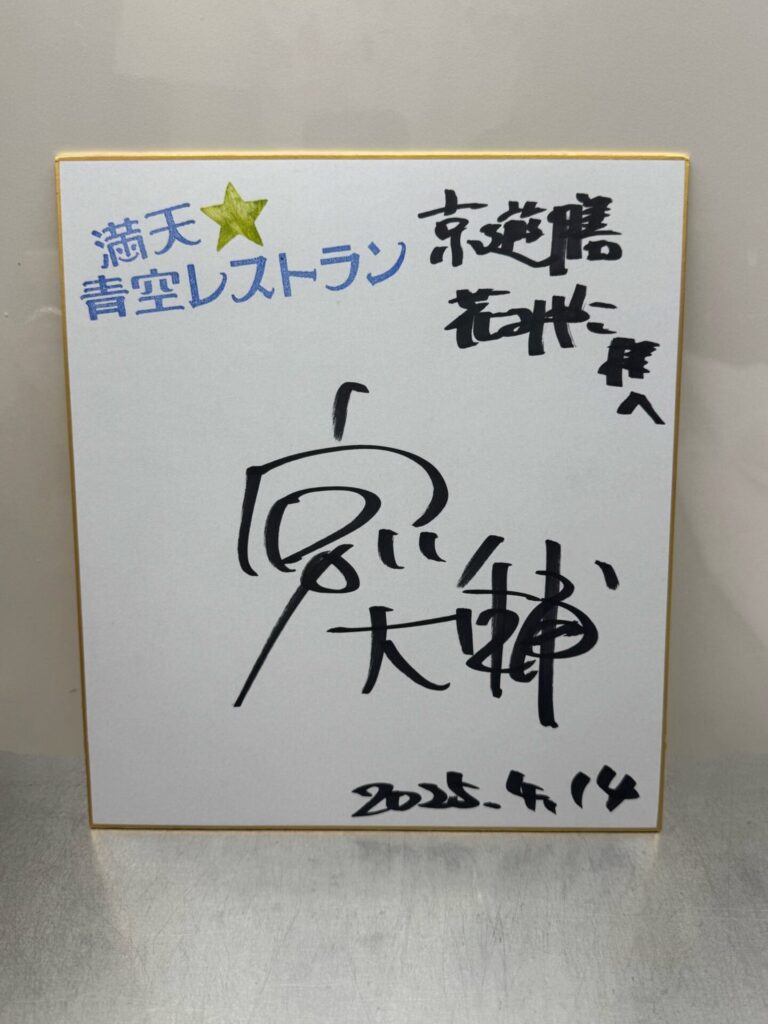 満天☆
青空レストラン
京遊膳
花みやこ
様へ
宮川
大輔
2025.4.14